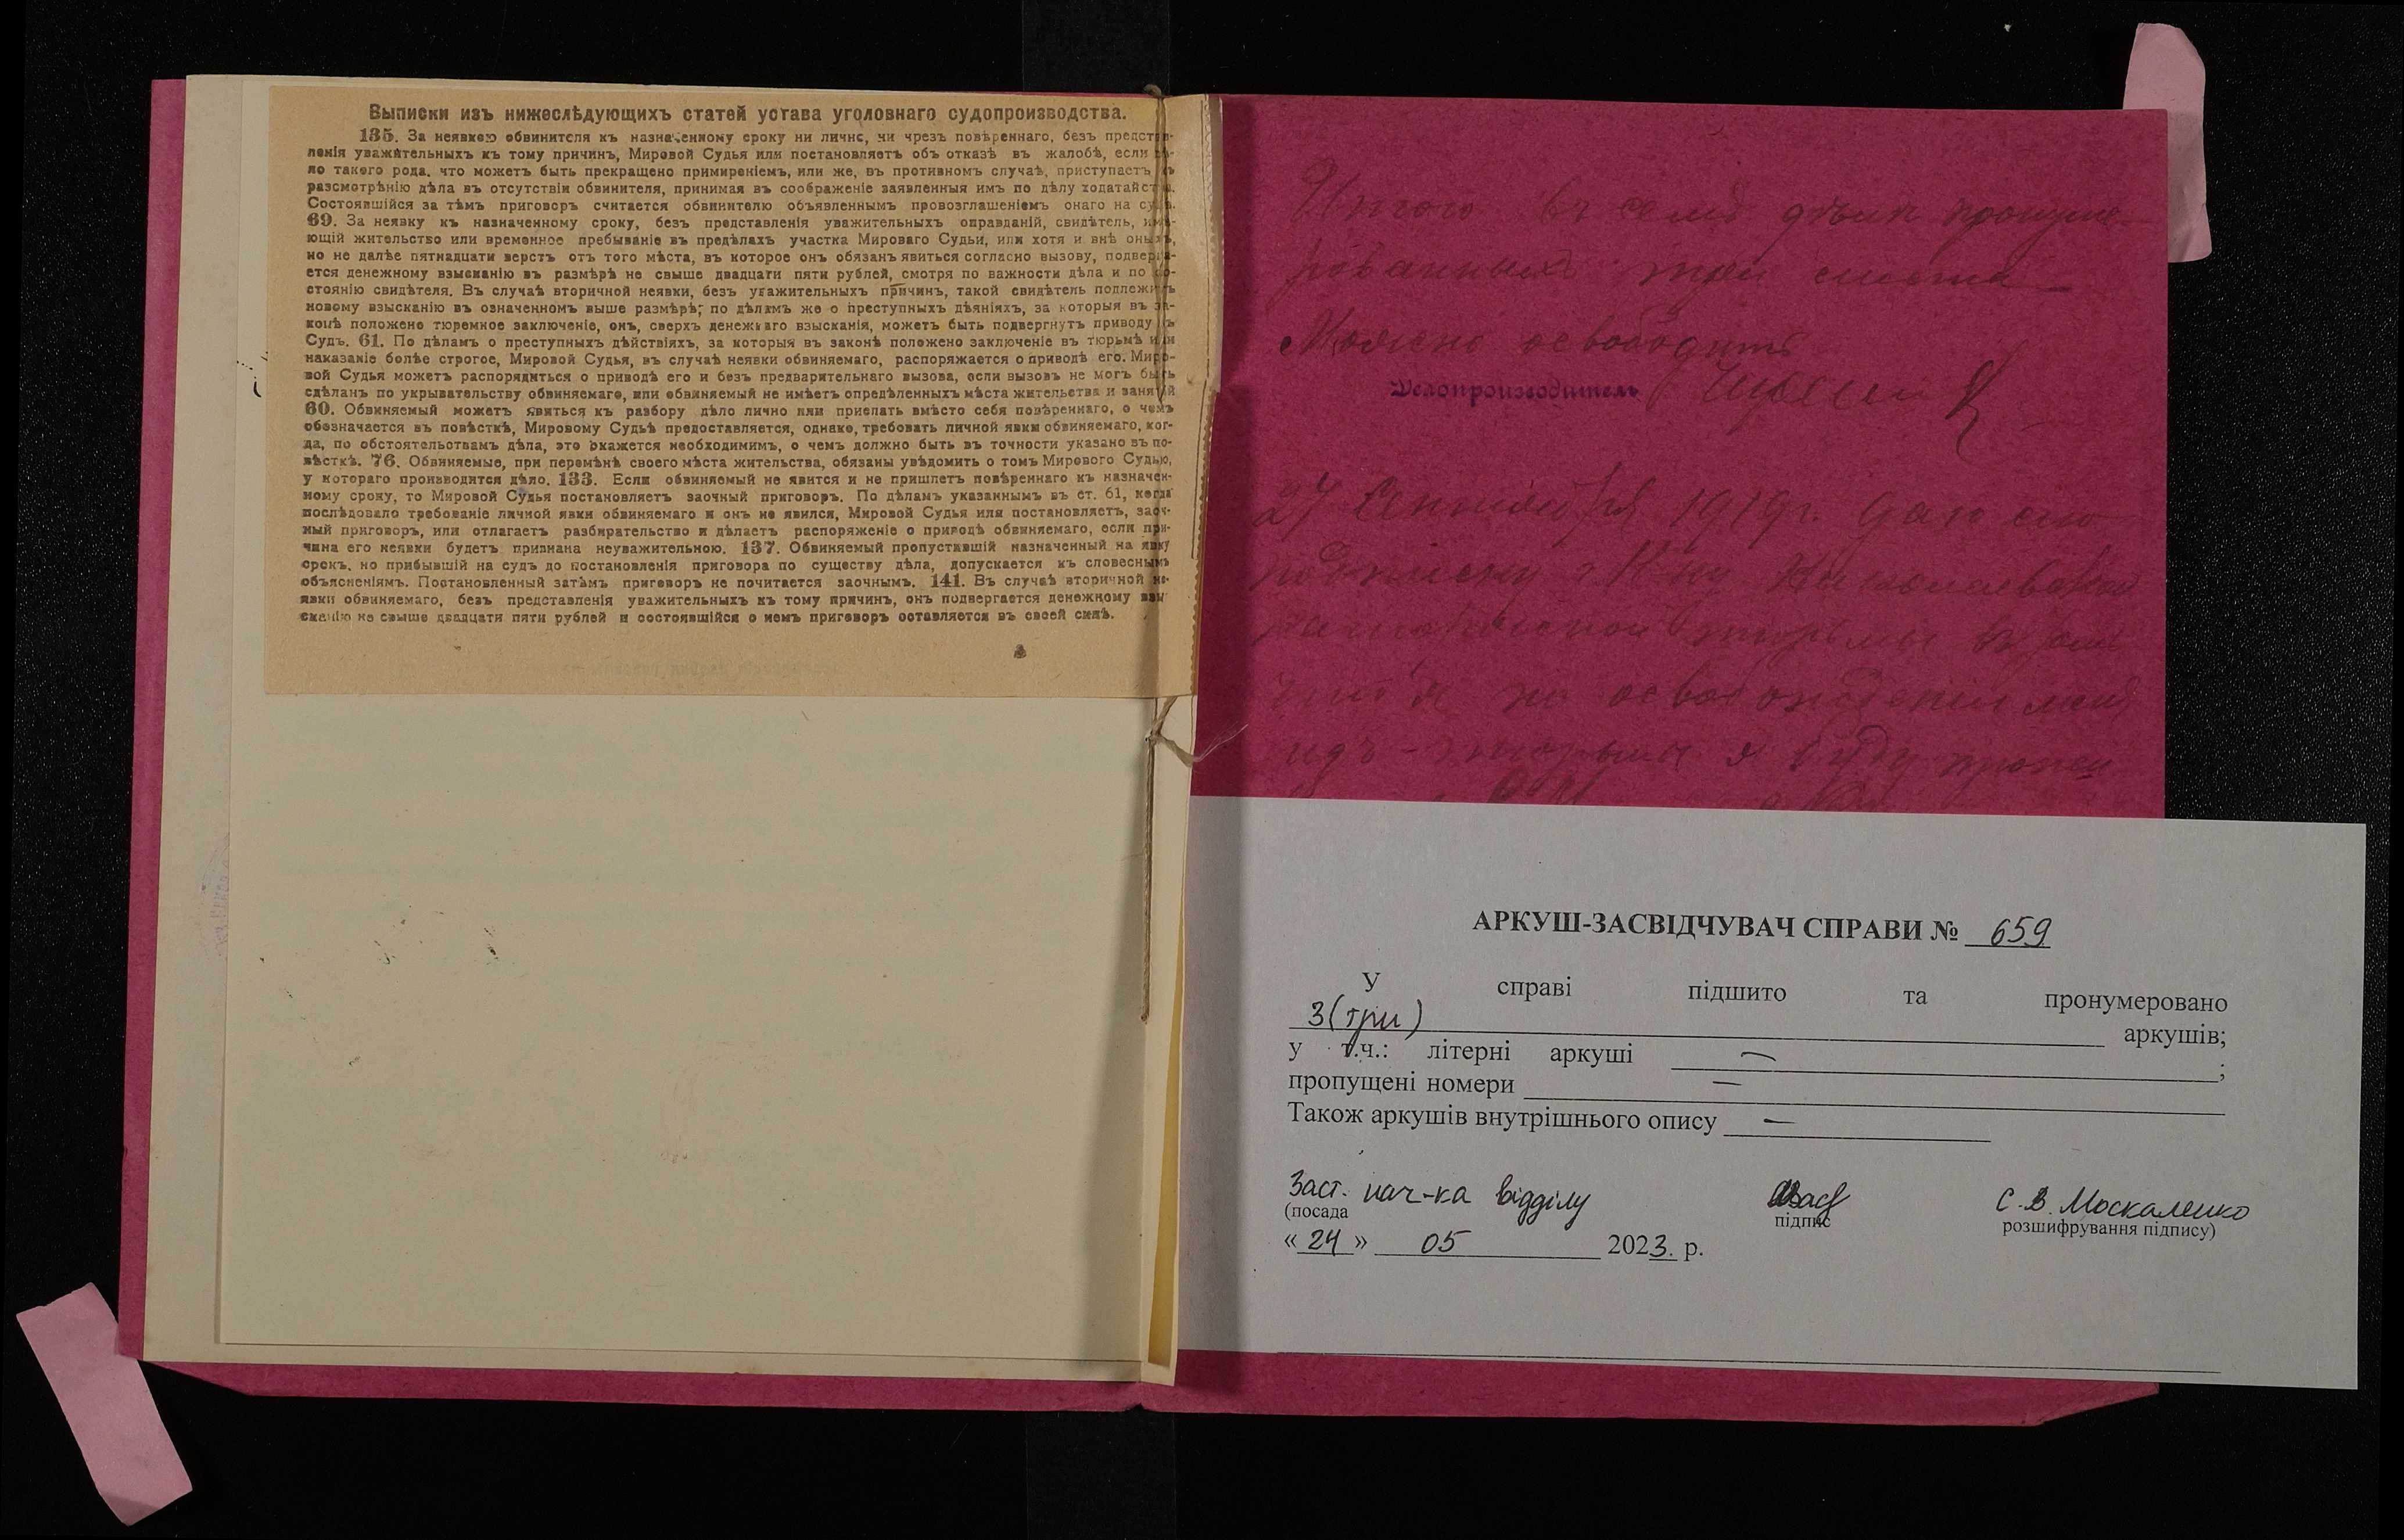 Выписки изъ нижеслѣдующихъ статей устава уголовнаго судопроизводства.
135. За неявкою обвинителя къ назначенному сроку ни лично, ни чрезъ повѣреннаго, безъ представ-
ленія уважительныхъ къ тому причинъ, Мировой Судья или постановляетъ объ отказѣ въ жалобѣ, если дѣ-
ло такого рода, что можетъ быть прекращено примиреніемъ, или же, въ противномъ случаѣ, приступаетъ къ
разсмотрѣнію дѣла въ отсутствіи обвинителя, принимая въ соображеніе заявленныя имъ по дѣлу ходатайства.
Состоявшійся за тѣмъ приговоръ считается обвинителю объявленнымъ провозглашеніемъ онаго на судѣ.
69. За неявку къ назначенному сроку, безъ представленія уважительныхъ оправданій, свидѣтель, имѣ-
ющій жительство или временное пребываніе въ предѣлахъ участка Мироваго Судьи, или хотя и внѣ оныхъ,
но не далѣе пятнадцати верстъ отъ того мѣста, въ которое онъ обязанъ явиться согласно вызову, подверга-
ется денежному взысканію въ размѣрѣ не свыше двадцати пяти рублей, смотря по важности дѣла и по со-
стоянію свидѣтеля. Въ случаѣ вторичной неявки, безъ уважительныхъ причинъ, такой свидѣтель подлежитъ
новому взысканію въ означенномъ выше размѣрѣ; по дѣламъ же о преступныхъ дѣяніяхъ, за которыя въ за-
конѣ положено тюремное заключеніе, онъ, сверхъ денежнаго взысканія, можетъ быть подвергнутъ приводу въ
Судъ. 61. По дѣламъ о преступныхъ дѣйствіяхъ, за которыя въ законѣ положено заключеніе въ тюрьмѣ или
наказаніе болѣе строгое, Мировой Судья, въ случаѣ неявки обвиняемаго, распоряжается о приводѣ его. Миро-
вой Судья можетъ распорядиться о приводѣ его и безъ предварительнаго вызова, если вызовъ не могъ быть
сдѣланъ по укрывательству обвиняемаго, или обвиняемый не имѣетъ опредѣленныхъ мѣста жительства и занятій
60. Обвиняемый можетъ явиться къ разбору дѣло лично или прислать вмѣсто себя повѣреннаго, о чемъ
обозначается въ повѣсткѣ, Мировому Судьѣ предоставляется, однако, требовать личной явки обвиняемаго, ког-
да, по обстоятельствамъ дѣла, это окажется необходимимъ, о чемъ должно быть въ точности указано въ по-
вѣсткѣ. 76. Обвиняемые, при перемѣнѣ своего мѣста жительства, обязаны увѣдомить о томъ Мирового Судью,
у котораго производится дѣло. 133. Если обвиняемый не явится и не пришлетъ повѣреннаго къ назначен-
ному сроку, то Мировой Судья постановляетъ заочный приговоръ. По дѣламъ указаннымъ въ ст. 61, когда
послѣдовало требованіе личной явки обвиняемаго и онъ не явился, Мировой Судья или постановляетъ, заоч-
ный приговоръ, или отлагаетъ разбирательство и дѣлаетъ распоряженіе о приводѣ обвиняемаго, если при-
чина его неявки будетъ признана неуважительною. 137. Обвиняемый пропустившій назначенный на явку
срокъ, но прибывшій на судъ до постановленія приговора по существу дѣла, допускается къ словеснымъ
объясненіямъ. Постановленный затѣмъ приговоръ не почитается заочнымъ. 141. Въ случаѣ вторичной не-
явки обвиняемаго, безъ представленія уважительныхъ къ тому причинъ, онъ подвергается денежному взы-
сканію не свыше двадцати пяти рублей и состоявшійся о немъ приговоръ оставляется въ своей силѣ.
три листа
Можно освободить
Делопроизводитель
24 Сентября 1919 г. даю сію
подписку
тюрьмы въ томъ
что я по освобожденіи меня
изъ тюрьмы я буду
АРКУШ-ЗАСВІДЧУВАЧ СПРАВИ № 659
У справі підшито та пронумеровано
3 (три) аркушів;
у т.ч.: літерні аркуші — ;
пропущені номери —
Також аркушів внутрішнього опису —
Заст. нач-ка відділу С.В. Москаленко
(посада підпис розшифрування підпису)
« 24 » 05 2023. р.